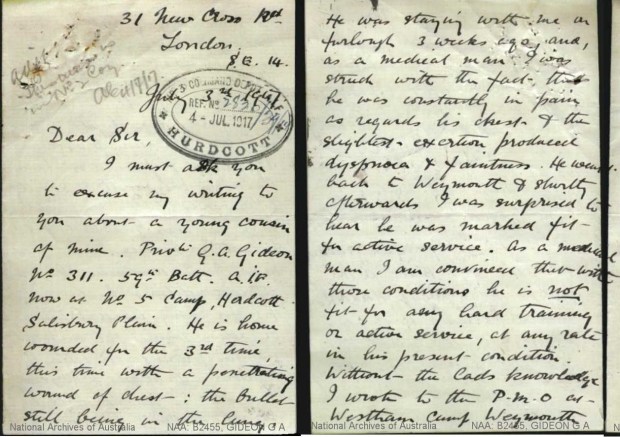 31 New Cross Rd
London,
S.E. 14.
July 3rd 1917
HURDCOTT
4 - JUL. 1917
REF. No
Dear Sir,
I must ask you
to excuse my writing to
you about a young cousin
of mine. Private G. A. Gideon
No 311. 59th Batt. A.I.F.
now at No 5 Camp, Hurdcott
Salisbury Plain. He is home
wounded for the 3rd time,
this time with a penetrating
wound of chest: the bullet
still being in the lung
National Archives of Australia
NAA: B2455, GIDEON G A
He was staying with me on
furlough 3 weeks ago, and,
as a medical man I was
struck with the fact that
he was constantly in pain
as regards his chest & the
slightest exertion produced
dyspnoea & faintness. He went
back to Weymouth & shortly
afterwards I was surprised to
hear he was marked fit
for active service. As a medical
man I am convinced that with
those conditions he is not
fit for any hard training
or active service, at any rate
in his present condition.
Without the lads knowledge
I wrote to the P.M.O at
Westham Camp Weymouth
National Archives of Australia
NAA: B2455, GIDEON G A